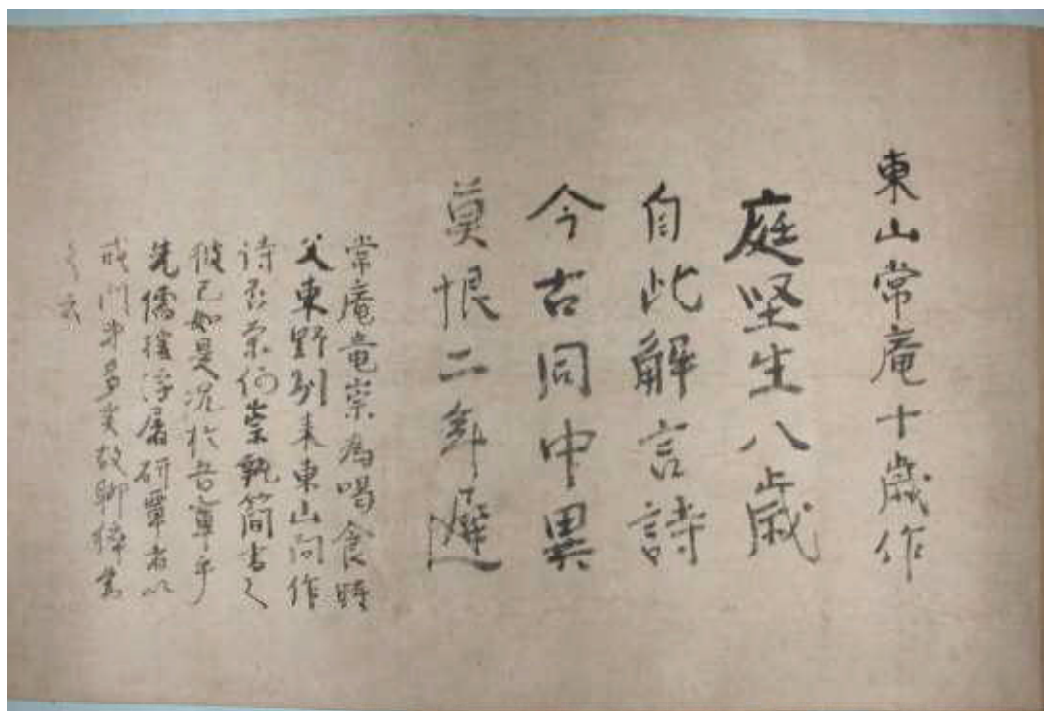 東山常庵十歳作
庭坚生八歳
自此解言詩
今古同中異
莫恨二年遅
常庵竜崇為喝食時
父東野別来東山问作
詩否崇崇執简书之
彼已如是况於吾軰乎
先儒擯浮屠研覃者以
戒门弟多矣故聊
云